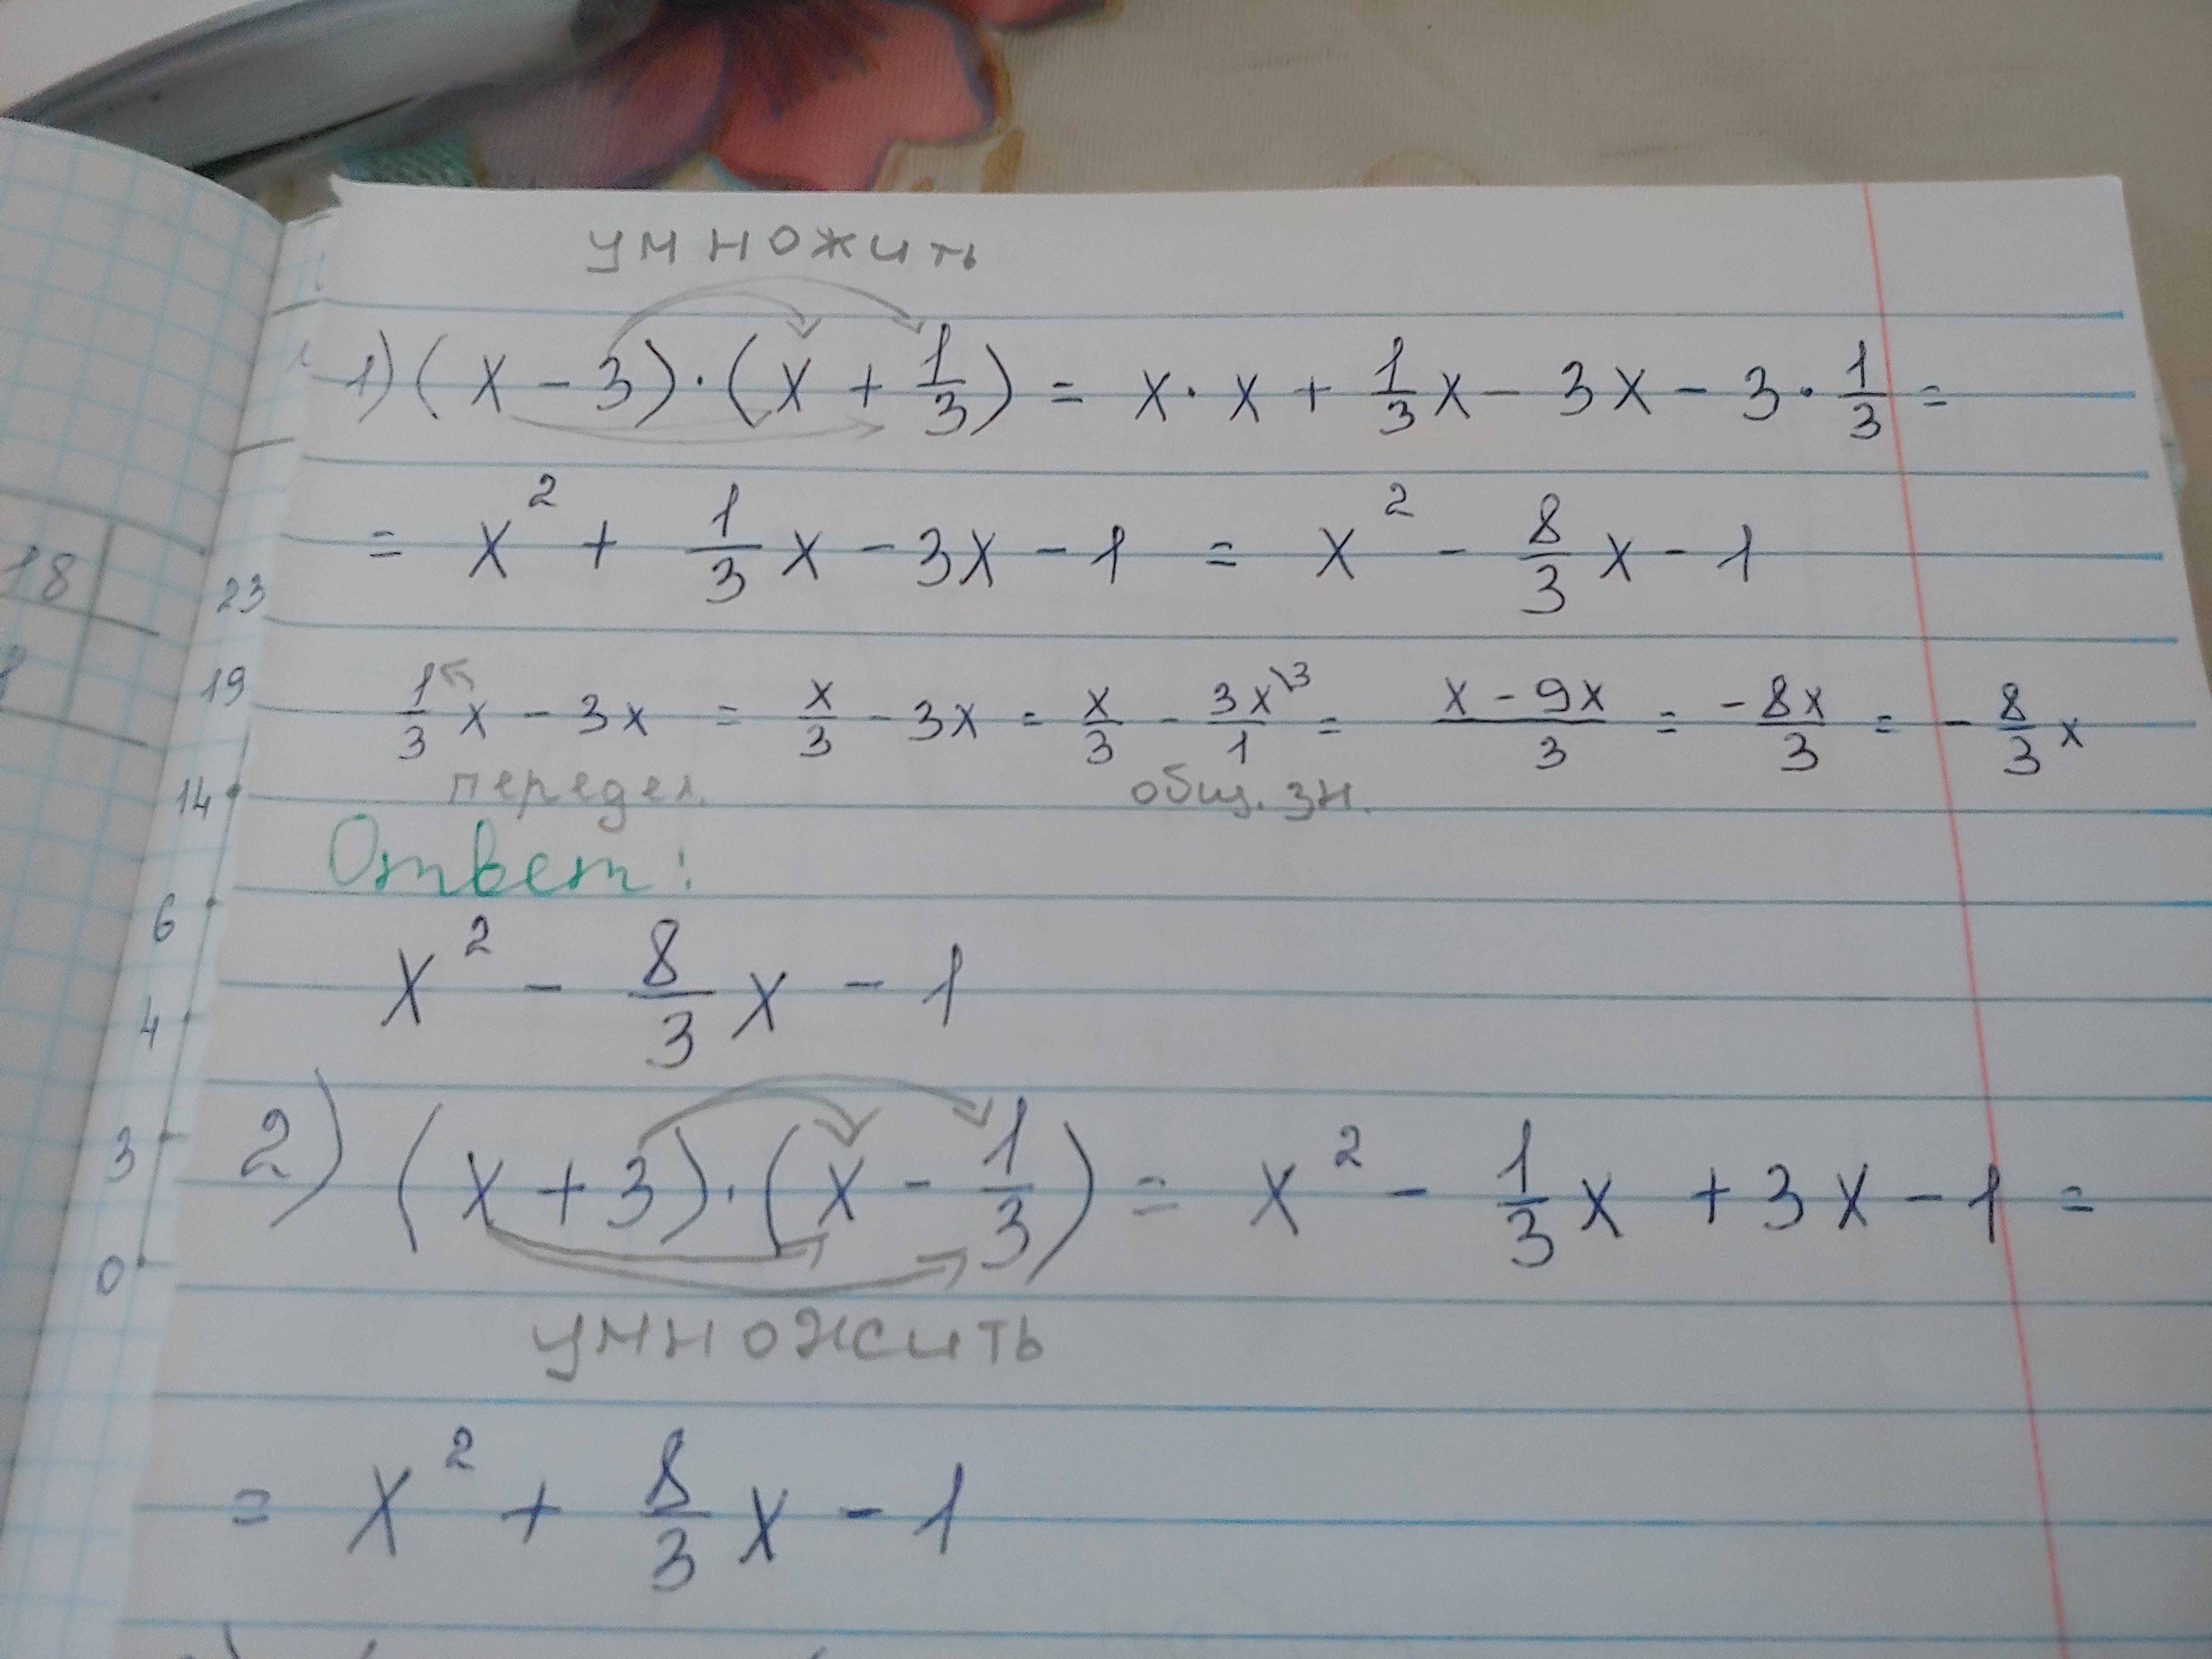 умножить
1) (x - 3) · (x + 1/3) = x · x + 1/3 x - 3x - 3 · 1/3 =
= x² + 1/3 x - 3x - 1 = x² - 8/3 x - 1
1/3 x - 3x = x/3 - 3x = x/3 - 3x\3/1 = x - 9x/3 = -8x/3 = - 8/3 x
передел. общ. зн.
Ответ:
x² - 8/3 x - 1
2) (x + 3) · (x - 1/3) = x² - 1/3 x + 3x - 1 =
умножить
= x² + 8/3 x - 1
18
23
19
14
6
4
3
0